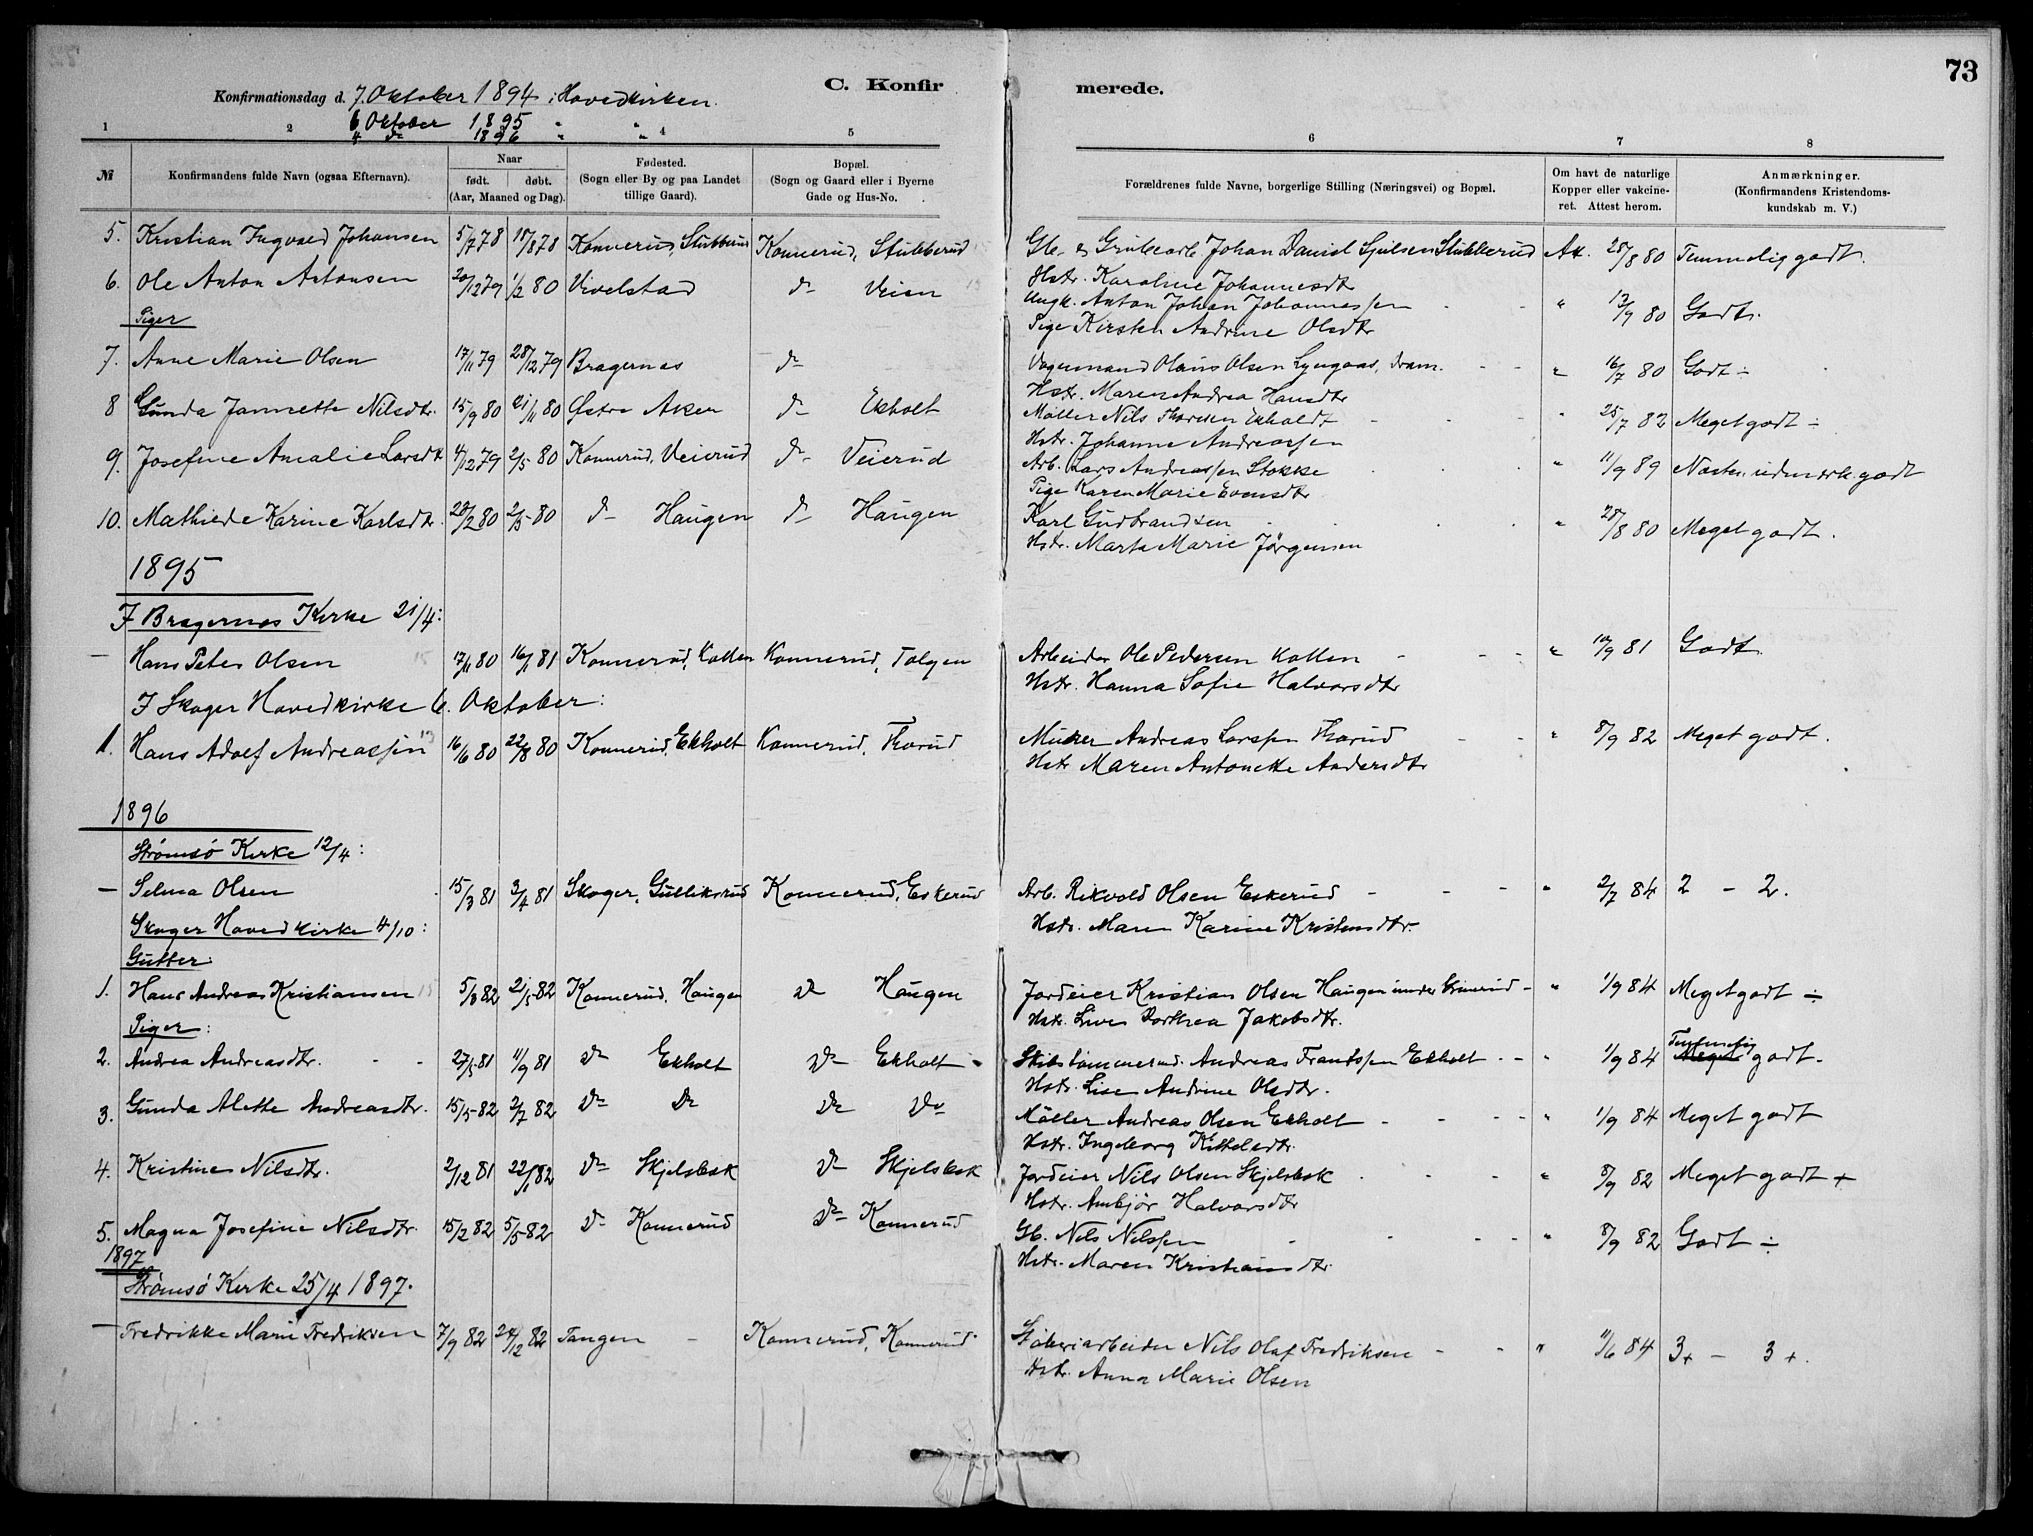 73
C. Konfirmerede.
Konfirmationsdag d. 7. Oktober 1894 i Hovedkirken.
6 Oktober 1895 " "
4 do 1896 " "
1 2 4 5 6 7 8
№ Konfirmandens fulde Navn (ogsaa Efternavn). Naar født. døbt. (Aar, Maaned og Dag). Fødested. (Sogn eller By og paa Landet tillige Gaard). Bopæl. (Sogn og Gaard eller i Byerne Gade og Hus-No. Forældrenes fulde Navne, borgerlige Stilling (Næringsvei) og Bopæl. Om havt de naturlige Kopper eller vakcineret. Attest herom. Anmærkninger. (Konfirmandens Kristendomskundskab m. V.)
5. Kristian Ingvald Johansen 5/7 78 18/8 78 Konnerud, Stubberud Konnerud, Stubberud Gb. & Grubearb. Johan Daniel Stubberud Att. 28/8 80 Temmelig godt.
Hstr. Karoline Johannesdtr
6. Ole Anton Antonsen 20/12 79 1/2 80 Vivelstad do Veien Ungk. Anton Johan Johannessen " 13/9 80 Godt.
Pige Kirsten Andrine Olsdtr
Piger
7. Anne Marie Olsen 17/11 79 28/12 79 Bragernæs do Vognmand Olaus Olsen Lyngaas, Dram. " 16/7 80 Godt ÷
Hstr. Maren Andrea Hansdtr
8 Gunda Jannette Nilsdtr. 15/9 80 21/11 80 Østre Aker do Ekholt Møller Nils Thoresen Ekholdt " 25/7 82 Meget godt ÷
Hstr. Johanne Andreassen
9. Josefine Amalie Larsdtr 4/12 79 2/5 80 Konnerud, Veierud do Veierud Arb. Lars Andreassen Stokke " 11/9 89 Næsten udmærk. godt
Pige Karen Marie Evensdtr
10. Mathilde Karine Karlsdtr. 28/2 80 2/5 80 do Haugen do Haugen Karl Gudbrandsen " 28/8 80 Meget godt.
Hstr. Marta Marie Jørgensen
1895
I Bragernæs Kirke 21/4:
— Hans Peter Olsen 17/11 80 16/1 81 Konnerud, Kollen Konnerud, Tolgen Arbeider Ole Pedersen Kollen " 10/9 81 Godt.
Hstr. Hanna Sofie Halvorsdtr
I Skoger Hovedkirke 6. Oktober:
1. Hans Adolf Andreassen 16/6 80 22/8 80 Konnerud, Ekholt Konnerud, Thorud Murer Andreas Larsen Thorud " 8/9 82 Meget godt.
Hstr Maren Antonette Andersdtr
1896
Strømsø Kirke 12/4:
— Selma Olsen 15/3 81 3/4 81 Skoger, Gulliksrud Konnerud, Eskerud Arb. Rikvold Olsen Eskerud " 2/7 84 2 - 2.
Hstr. Maren Karine Kristensdtr.
Skoger Hovedkirke 4/10:
Gutter:
1. Hans Andreas Kristiansen 5/3 82 21/5 82 Konnerud, Haugen do Haugen Jordeier Kristian Olsen Haugen under " 1/9 84 Meget godt ÷
Hstr. Live Dorthea Jakobsdtr.
Piger:
2. Andrea Andreasdtr. 27/5 81 11/9 81 do Ekholt do Ekholt Skibstømmermd. Andreas Frantssen Ekholt " 1/9 84 Temmelig godt.
Hstr. Lise Andrine Olsdtr.
3. Gunda Alette Andreasdtr. 15/5 82 2/7 82 do do do do Møller Andreas Olsen Ekholt " 1/9 84 Meget godt
Hstr. Ingeborg Kittelsdtr.
4. Kristine Nilsdtr. 2/12 81 22/1 82 do Skjelsbæk do Skjelsbæk Jordeier Nils Olsen Skjelsbæk " 8/9 82 Meget godt +
Hstr. Ambjør Halvorsdtr
5. Magna Josefine Nilsdtr. 15/2 82 5/5 82 do Konnerud do Konnerud Gb. Nils Nilssen " 8/9 82 Godt ÷
Hstr. Maren Kristiansdtr.
1897
Strømsø Kirke 25/4 1897.
— Fredrikke Marie Fredriksen 7/9 82 24/12 82 Tangen - Konnerud, Konnerud Støberiarbeider Nils Olaf Fredriksen " 11/6 84 3+ - 3+.
Hstr. Anna Marie Olsen